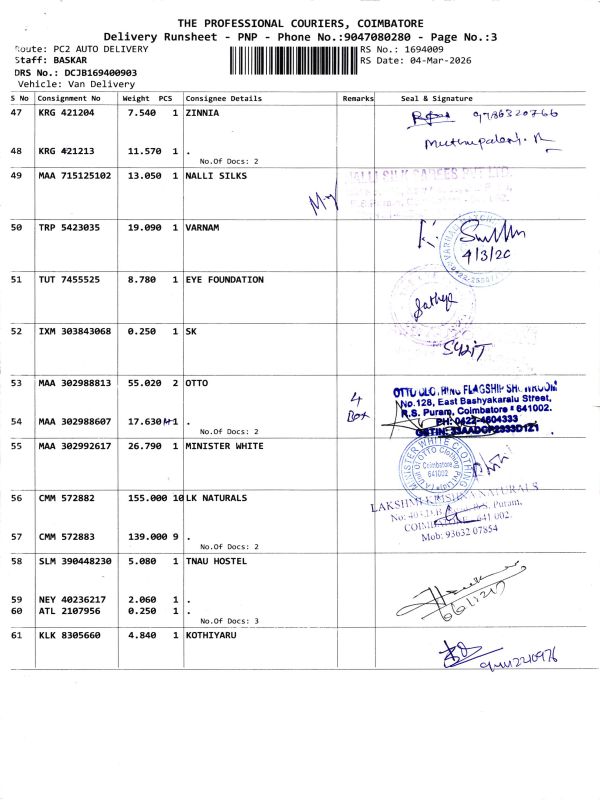 THE PROFESSIONAL COURIERS, COIMBATORE
Delivery Runsheet - PNP - Phone No.:9047080280 - Page No.:3
Route: PC2 AUTO DELIVERY
RS No.: 1694009
Staff: BASKAR
RS Date: 04-Mar-2026
DRS No.: DCJB169400903
Vehicle: Van Delivery
S No Consignment No Weight PCS Consignee Details Remarks Seal & Signature
47 KRG 421204 7.540 1 ZINNIA
9786320766
48 KRG 421213 11.570 1 .
No.Of Docs: 2
49 MAA 715125102 13.050 1 NALLI SILKS
50 TRP 5423035 19.090 1 VARNAM
4/3/20
51 TUT 7455525 8.780 1 EYE FOUNDATION
Sathya
52 IXM 303843068 0.250 1 SK
53 MAA 302988813 55.020 2 OTTO
4
Box
OTTO CLOTHING FLAGSHIP SHOWROOM
No.128, East Bashyakaralu Street,
R.S. Puram, Coimbatore - 641002.
PH: 0422-4604333
54 MAA 302988607 17.630 1 .
No.Of Docs: 2
55 MAA 302992617 26.790 1 MINISTER WHITE
MINISTER WHITE CLOTHING
(A Unit of OTTO Clothing Pvt Ltd)
Coimbatore
641002
56 CMM 572882 155.000 10 LK NATURALS
LAKSHMI KRISHNA NATURALS
R.S. Puram,
COIMBATORE - 641 002.
Mob: 93632 07854
57 CMM 572883 139.000 9 .
No.Of Docs: 2
58 SLM 390448230 5.080 1 TNAU HOSTEL
59 NEY 40236217 2.060 1 .
60 ATL 2107956 0.250 1 .
No.Of Docs: 3
61 KLK 8305660 4.840 1 KOTHIYARU